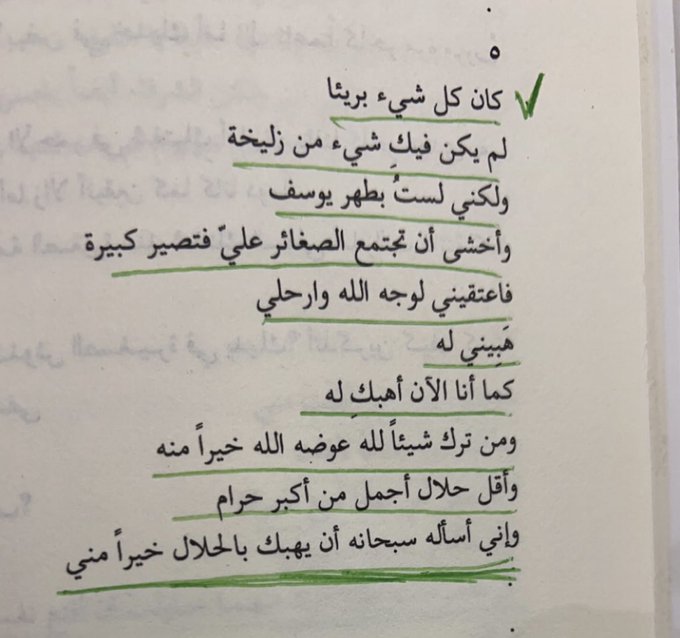 ٥
كان كل شيء بريئا
لم يكن فيكِ شيء من زليخة
ولكني لستُ بطهر يوسف
وأخشى أن تجتمع الصغائر عليّ فتصير كبيرة
فاعتقيني لوجه الله وارحلي
هَبِيني له
كما أنا الآن أهبكِ له
ومن ترك شيئاً لله عوضه الله خيراً منه
وأقل حلال أجمل من أكبر حرام
وإني أسأله سبحانه أن يهبك بالحلال خيراً مني